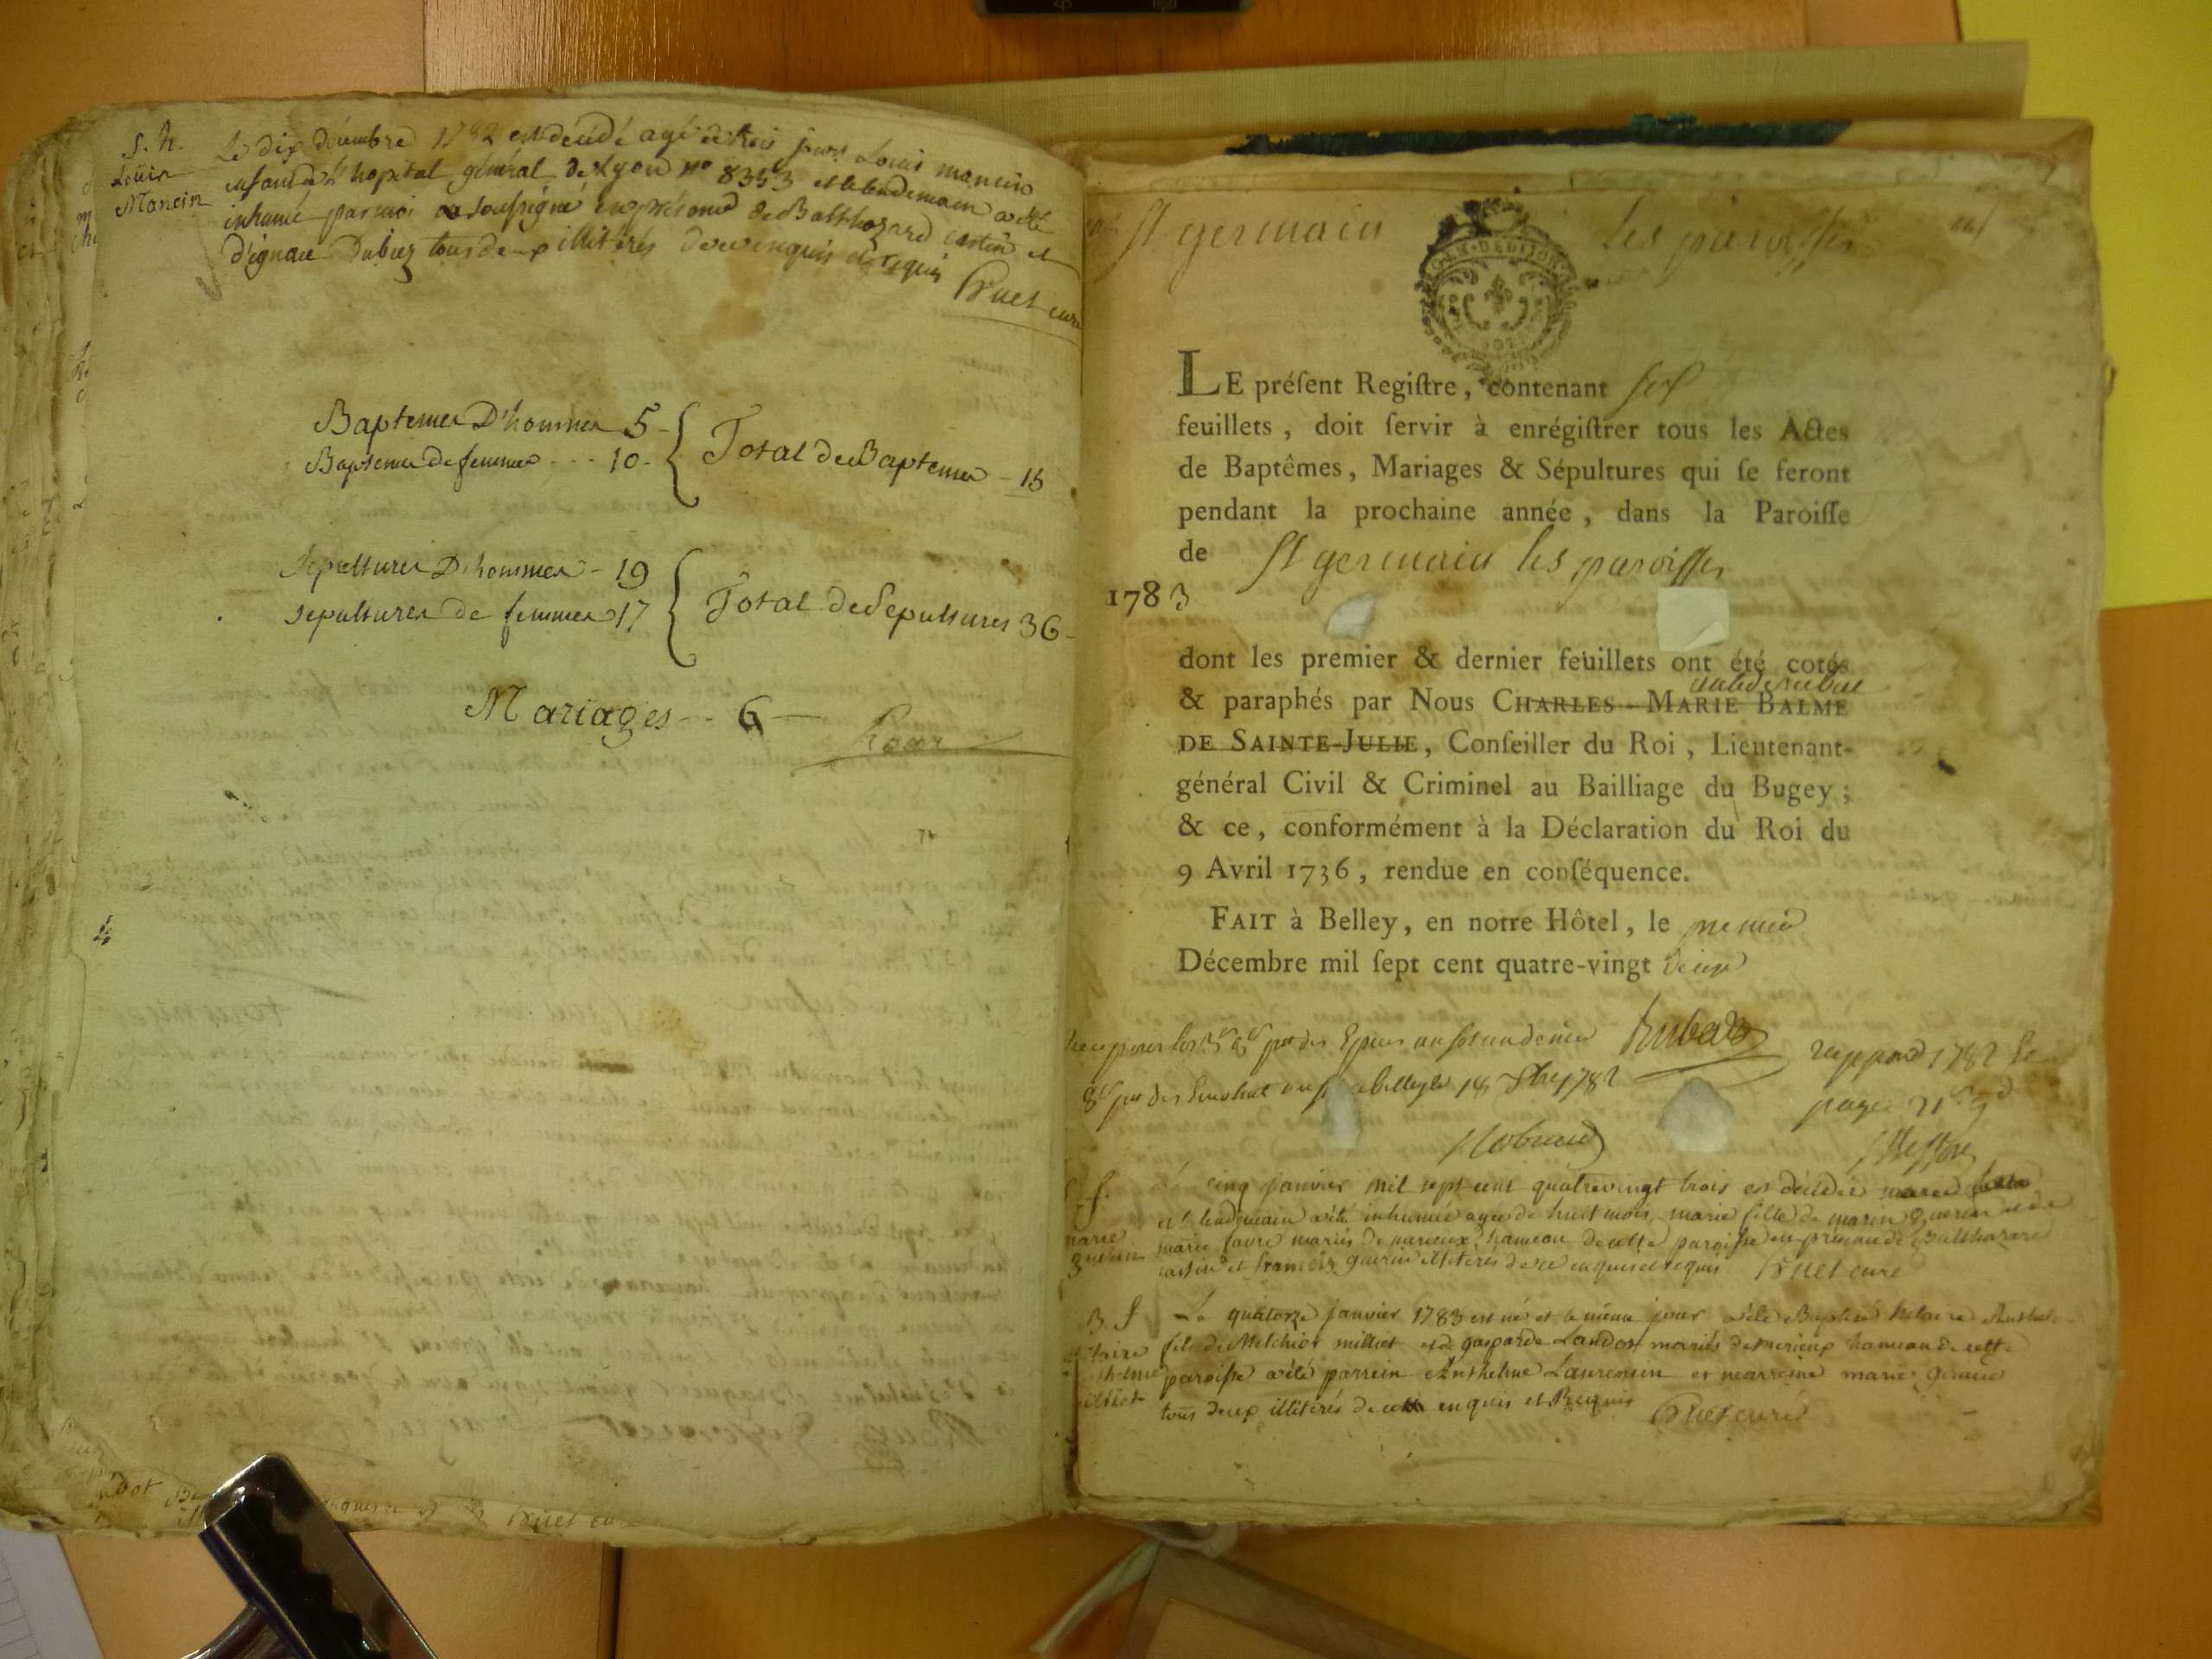 S. h.
Loüis
Moncin
Le dix décembre 1782 est décédé agé de trois jours Louis moncin
enfant de l'hopital général de Lyon no 8353 et le lendemain a été
inhumé par moi soussigné en présence de Balthazard castin et
d'ignace Dubiez tous deux illitérés de ce enquis et requis
Bruet curé
Baptemes D'hommes 5
Baptemes de femmes - - - 10
Total des Baptemes - 15
Sepultures D'hommes - 19
sepultures de femmes 17
Total de Sepultures 36
Mariages - - 6
St germain les paroisses
GEN. DE DIJON
LE préſent Regiſtre, contenant six
feuillets, doit ſervir à enrégiſtrer tous les Actes
de Baptêmes, Mariages & Sépultures qui ſe feront
pendant la prochaine année, dans la Paroiſſe
de St germain les paroisses
1783
dont les premier & dernier feuillets ont été cotés
& paraphés par Nous CHARLES-MARIE BALME
DE SAINTE-JULIE, Conſeiller du Roi, Lieutenant-
général Civil & Criminel au Bailliage du Bugey;
& ce, conformément à la Déclaration du Roi du
9 Avril 1736, rendue en conſéquence.
FAIT à Belley, en notre Hôtel, le premier
Décembre mil ſept cent quatre-vingt deux
belley le 18 1782
1782
page 21
S.
marie
guerin
Le cinq janvier mil sept cent quatrevingt trois est décédée
et le lendemain a été inhumée agée de huit mois, marie fille de marin guerin et de
marie favre mariés de merieux, hameau de cette paroisse en présence de Balthazard
castin et francois guerin illitérés de ce enquis et requis Bruet curé
B. f
hilaire
Anthelme
milliet
Le quatorze janvier 1783 est né et le même jour a été Baptisé hilaire Anthel
fils de Melchior milliet et de gasparde Landos mariés de merieux hameau de cette
paroisse a été parrein Anthelme Laurensin et marreine marie
tous deux illitérés de ce enquis et Requis Bruet curé